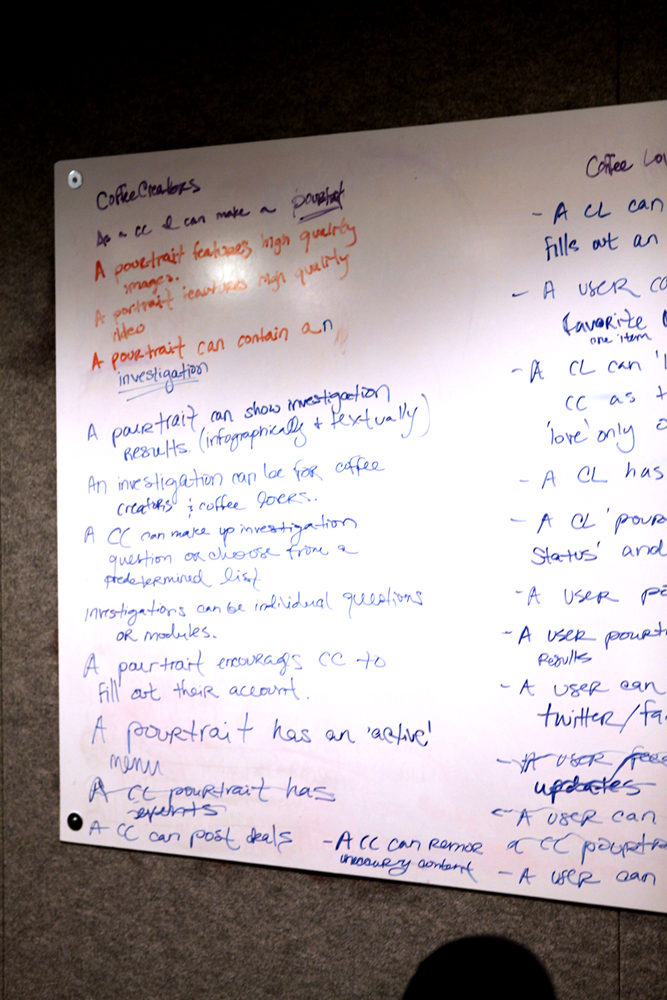 CoffeeCreators
As a CC I can make a pourtrait
A pourtrait features high quality
images.
A portrait features high quality
video
A pourtrait can contain an
investigation
A pourtrait can show investigation
Results. (infographically & textually)
An investigation can be for coffee
creators & coffee lovers.
A CC can make up investigation
question or choose from a
predetermined list
Investigations can be individual questions
or modules.
A pourtrait encourages CC to
fill out their account.
A pourtrait has an 'active'
menu
A CC pourtrait has
events
A CC can post deals
- A CC can remove
content
Coffee Lov
- A CL can
fills out an
- A USER co
favorite
one item
- A CL can 'l
CC as
'love' only
- A CL has
- A CL 'pour
Status' and
- A USER po
- A USER pourt
Results
- A USER can
twitter/fa
- A USER feee
updates
- A USER can
a CC pourtra
- A USER can